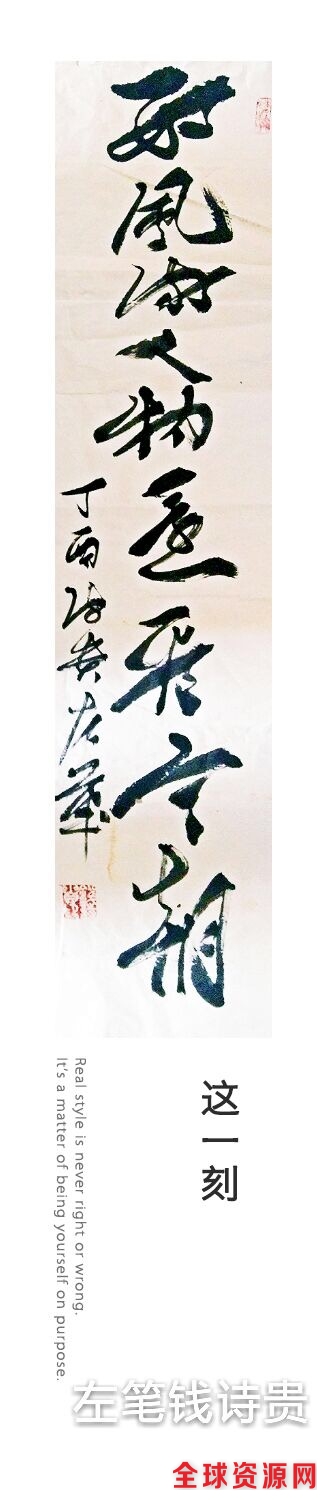 数風流人物还看今朝
丁酉诗贵左筆
这一刻
Real style is never right or wrong.
It's a matter of being yourself on purpose.
左笔钱诗贵
全球资源网